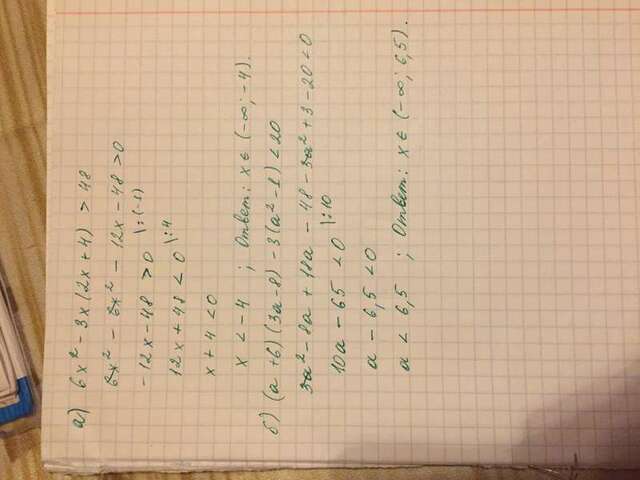 а) 6x² - 3x(2x+4) > 48
6x² - 6x² - 12x - 48 > 0
-12x - 48 > 0 \:(-1)
12x + 48 < 0 \:4
x + 4 < 0
x < -4 ; Ответ: x ∈ (-∞; -4).
б) (a + 6)(3a - 8) - 3(a² - 1) < 20
3a² - 8a + 18a - 48 - 3a² + 3 - 20 < 0
10a - 65 < 0 \:10
a - 6,5 < 0
a < 6,5 ; Ответ: x ∈ (-∞; 6,5).